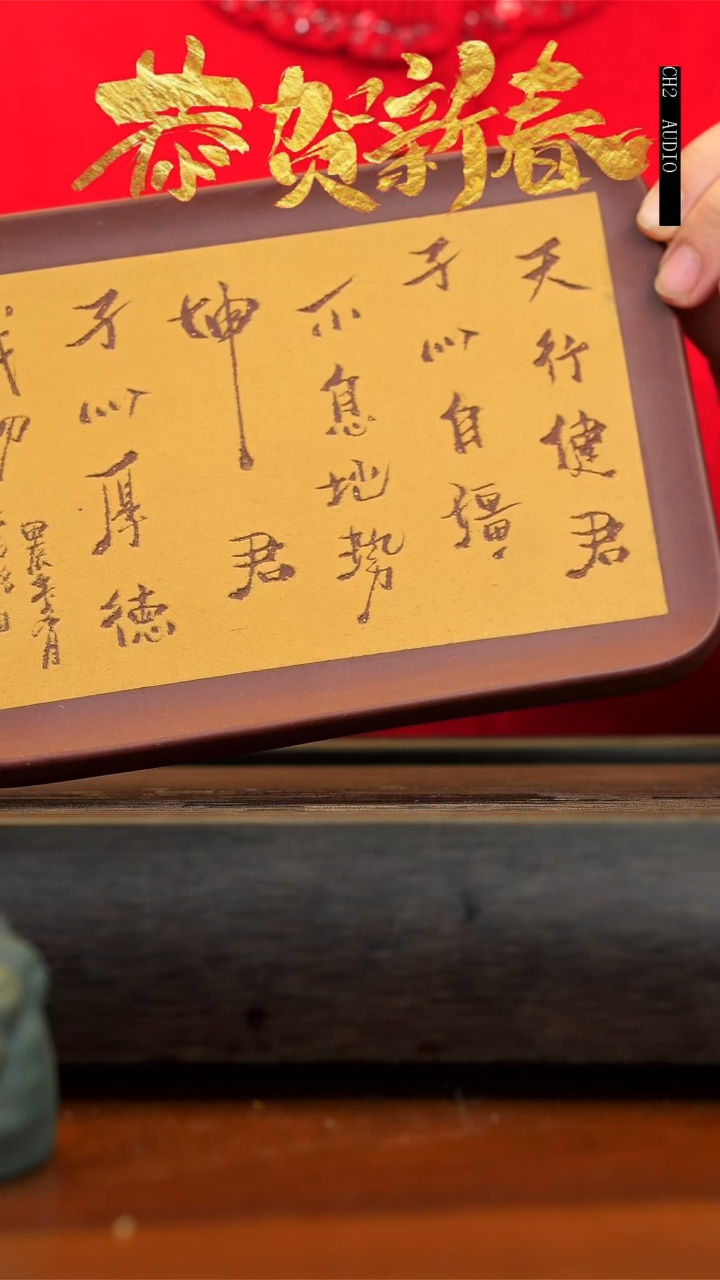 恭贺新春
CH2 AUDIO
天行健君
子以自彊
不息地势
坤君
子以厚德
甲辰年冬月